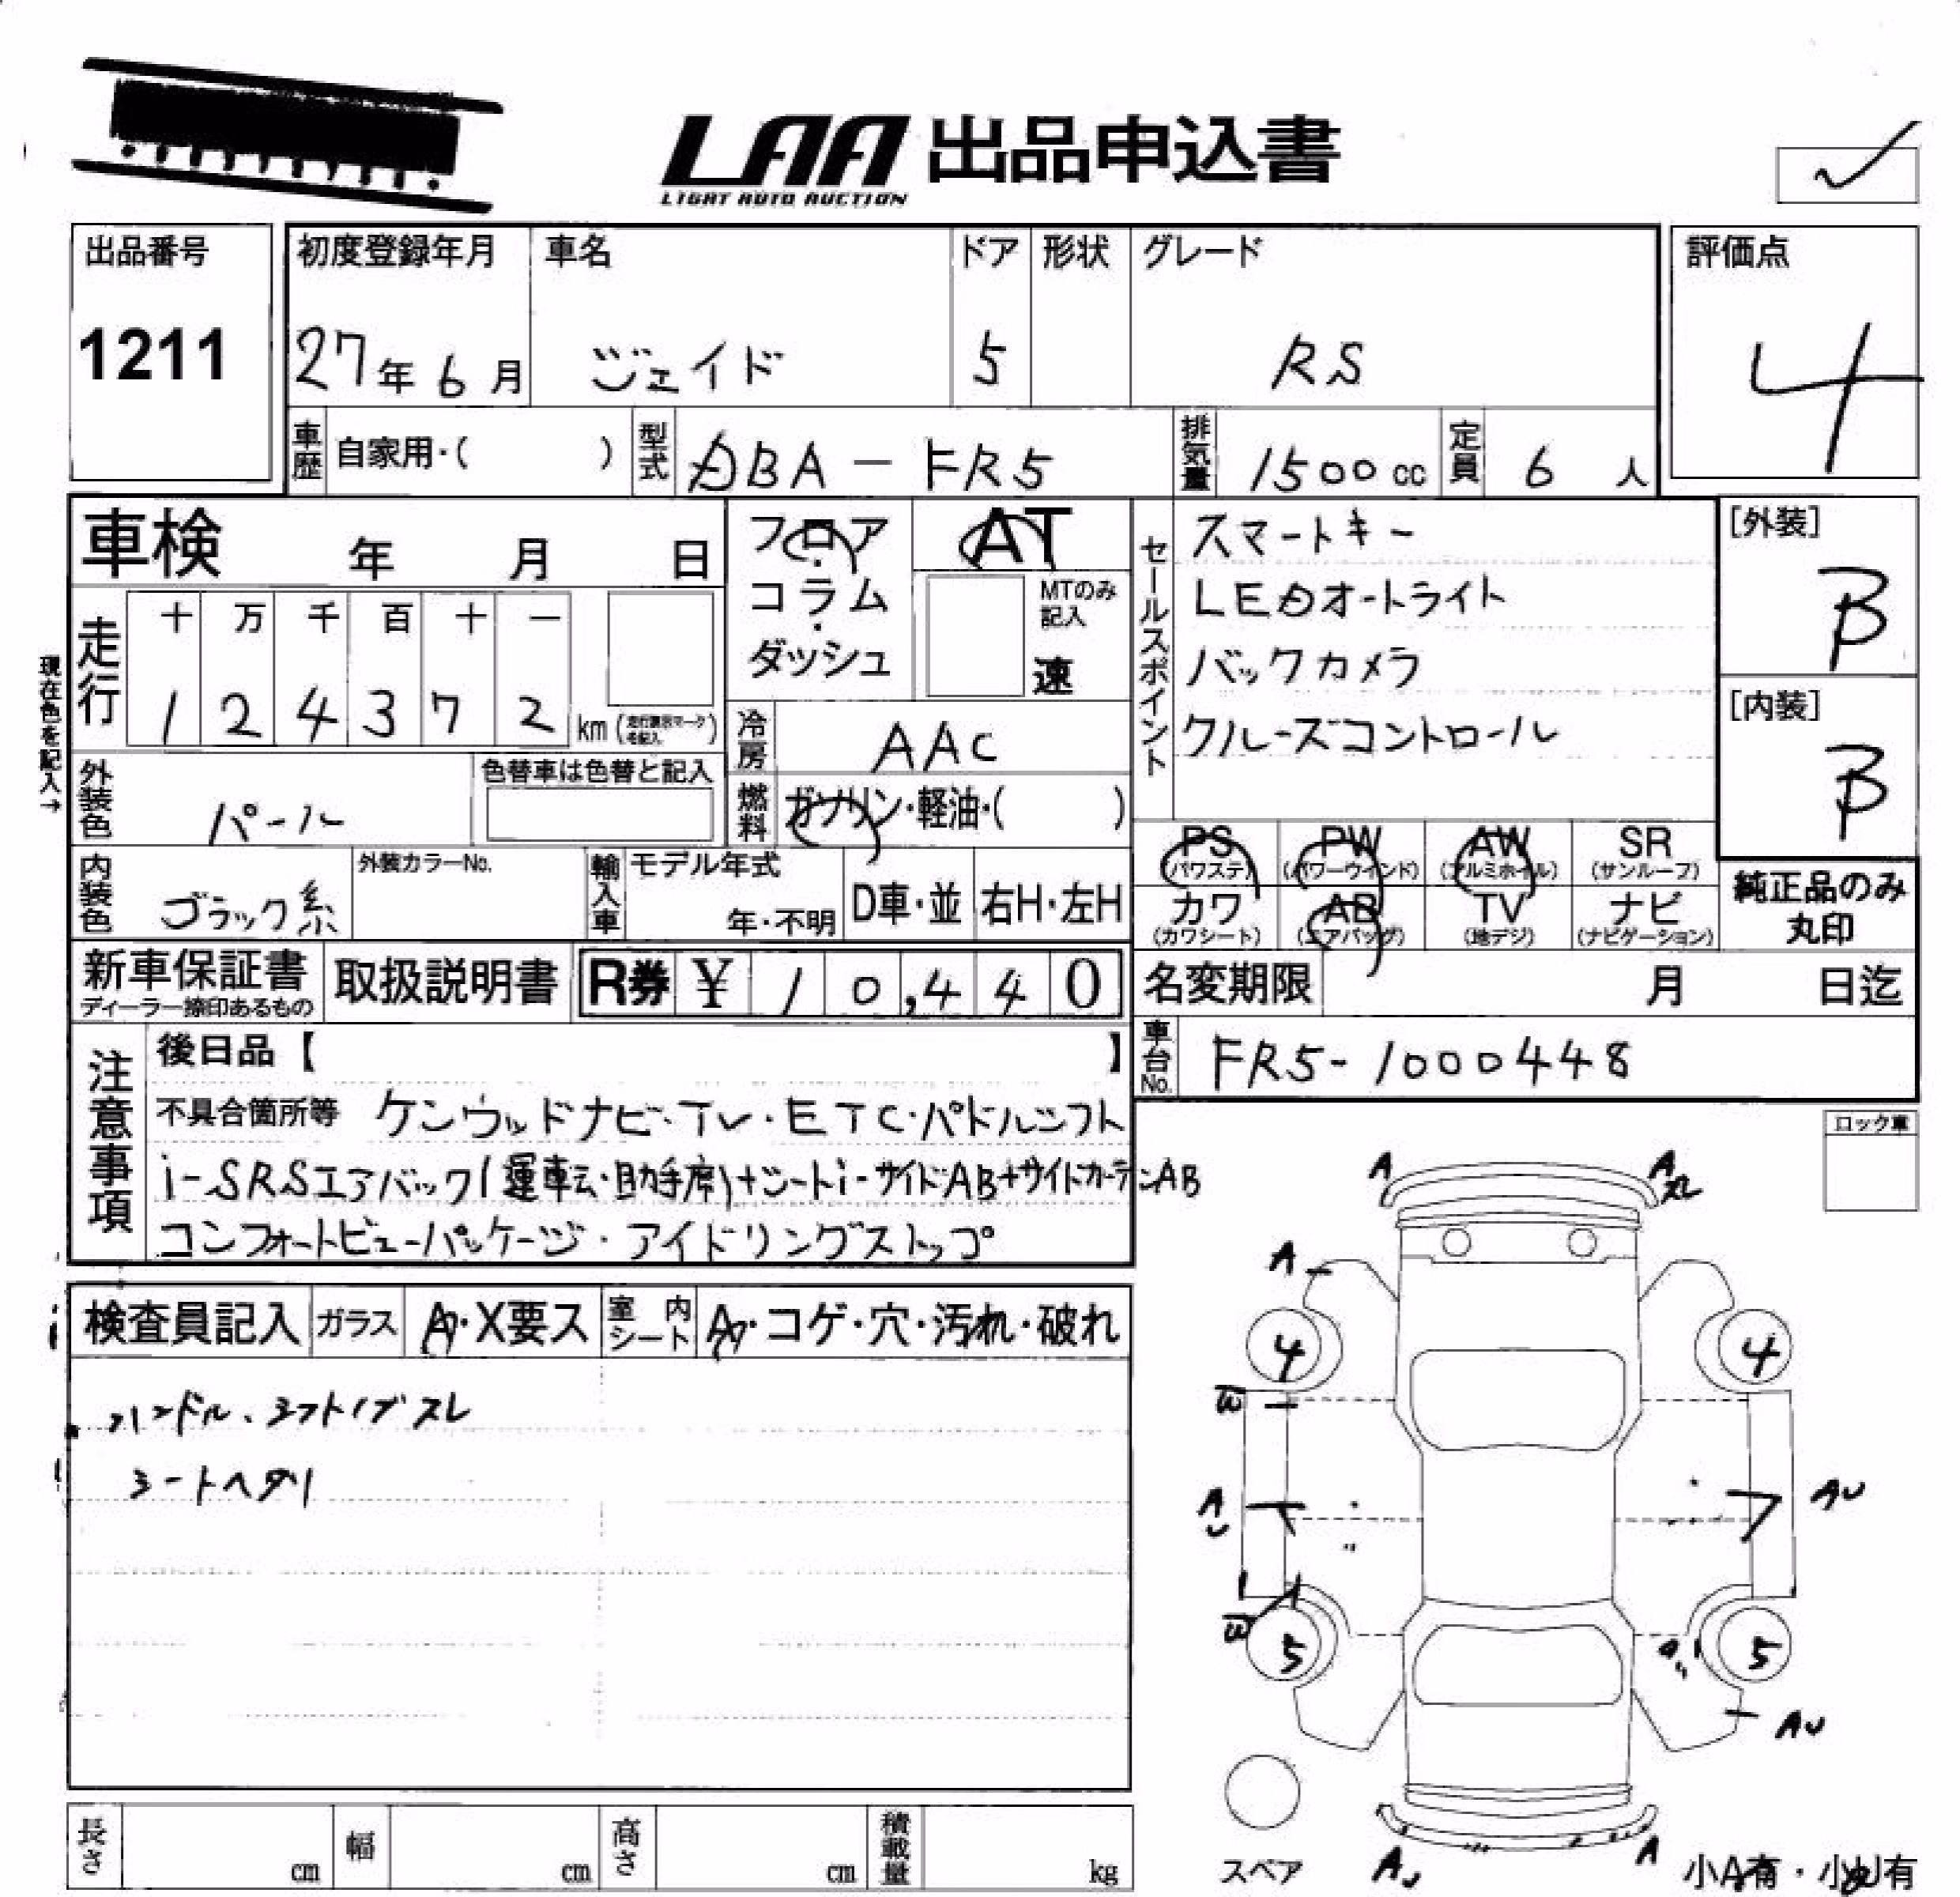 LAA 出品申込書
LIGHT AUTO AUCTION
出品番号 初度登録年月 車名 ドア 形状 グレード 評価点
1211 27年6月 ジェイド 5 RS 4
車歴 自家用・( ) 型式 DBA-FR5 排気量 1500cc 定員 6人
車検 年 月 日 フロア・コラム・ダッシュ AT
MTのみ記入 速
現在色を記入→
走行 十 万 千 百 十 一
1 2 4 3 7 2 km
冷房 AAC
セールスポイント
スマートキー
LEDオートライト
バックカメラ
クルーズコントロール
[外装] B
[内装] B
外装色 パール 色替車は色替と記入 燃料 ガソリン・軽油・( )
PS (パワステ) PW (パワーウインド) AW (アルミホイル) SR (サンルーフ)
カワ (カワシート) AB (エアバッグ) TV (地デジ) ナビ (ナビゲーション)
純正品のみ丸印
内装色 ブラック系 外装カラーNo. 輸入車 モデル年式 年・不明 D車・並 右H・左H
新車保証書 取扱説明書 R券 ¥ 10,440 名変期限 月 日迄
ディーラー捺印あるもの
車台No. FR5-1000448
注意事項
後日品【 】
不具合箇所等 ケンウッドナビ・TV・ETC・パドルシフト
i-SRSエアバック(運転・助手席)+シートi-サイドAB+サイドカーテンAB
コンフォートビューパッケージ・アイドリングストップ
ロック車
検査員記入 ガラス A・X要ス 室内シート A・コゲ・穴・汚れ・破れ
ハンドル、シフトノブスレ
シートヘタリ
A A
A
4 4
W
A AU
W
5 5
AU
A A
スペア
小A有・小U有
長さ cm 幅 cm 高さ cm 積載量 kg